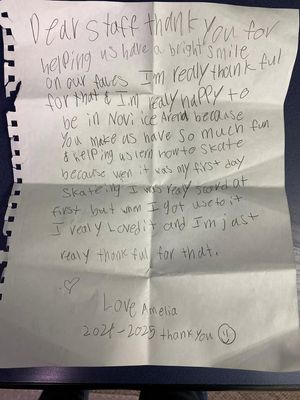 Dear Staff thank you for
helping us have a bright smile
on our faces I'm really thank ful
for that & I'm realy happy to
be in Novi ice Arena because
You make us have so much fun
& helping us lern how to skate
because wen it was my first day
skateing I was realy scard at
first but whn I got use to it
I realy Loved it and I'm jast
realy thank ful for that.
♡
Love Amelia
2024-2025 thank you ☺